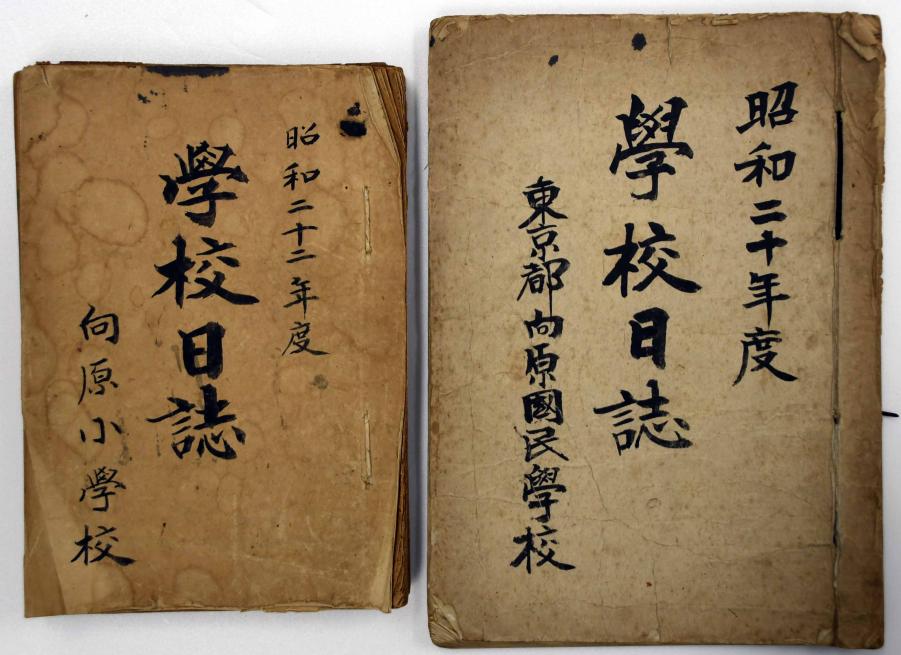 昭和二十二年度
學校日誌
向原小學校
昭和二十年度
學校日誌
東京都向原國民學校